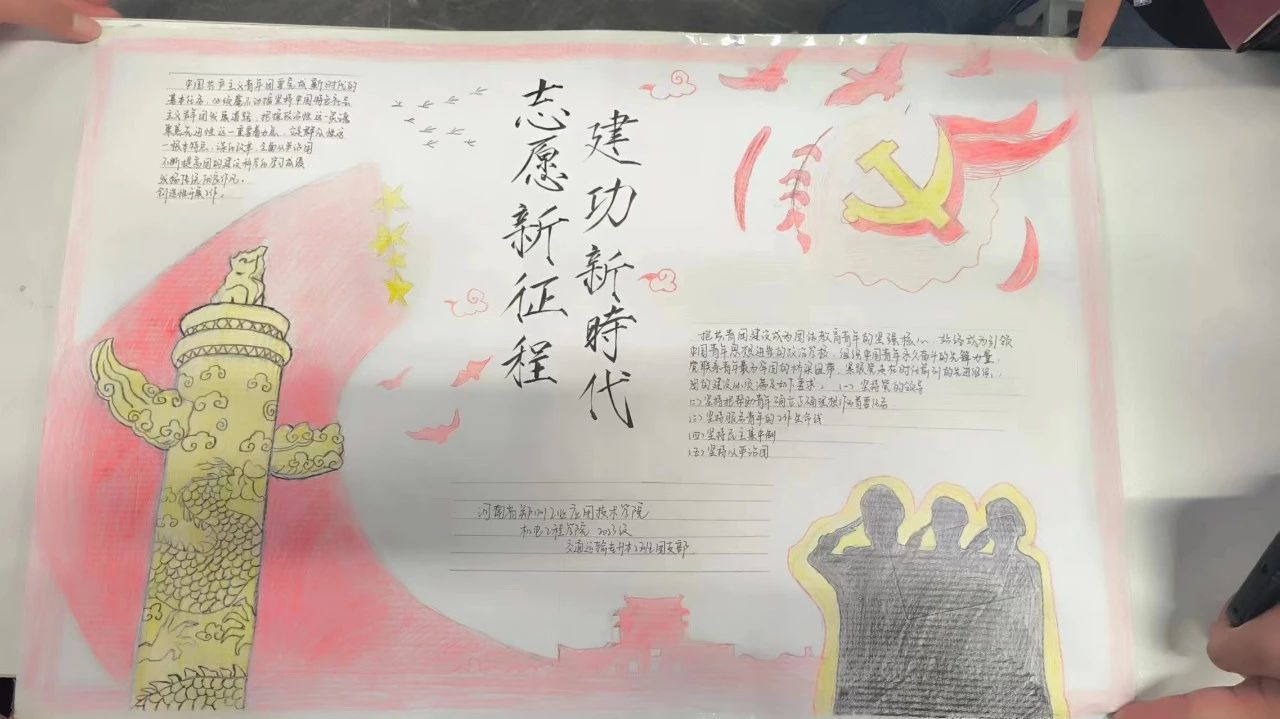 中国共产主义青年团要完成新时代的
基本任务，必须毫不动摇坚持中国特色社会
主义青年团发展道路，把握政治性这一灵魂
聚焦先进性这一重要着力点，
一根本特点，谋的改革，全面从严治团
不断提高团的建设科学化
创造性开展工作。
建功新時代
志愿新征程
把共青团建设成为团结教育青年的坚强核心，始终成为引领
中国青年思想进步的政治学校，组织中国青年永久奋斗的先锋力量，
党联系青年最为牢固的桥梁纽带，紧跟党走在时代前列的先进组织，
团的建设必须满足如下要求。（一）坚持党的领导
（二）坚持把帮助青年确立正确理想作为首要任务
（三）坚持服务青年的工作生命线
（四）坚持民主集中制
（五）坚持从严治团
河南省郑州工业应用技术学院
机电工程学院 2023级
交通运输专升本2班团支部